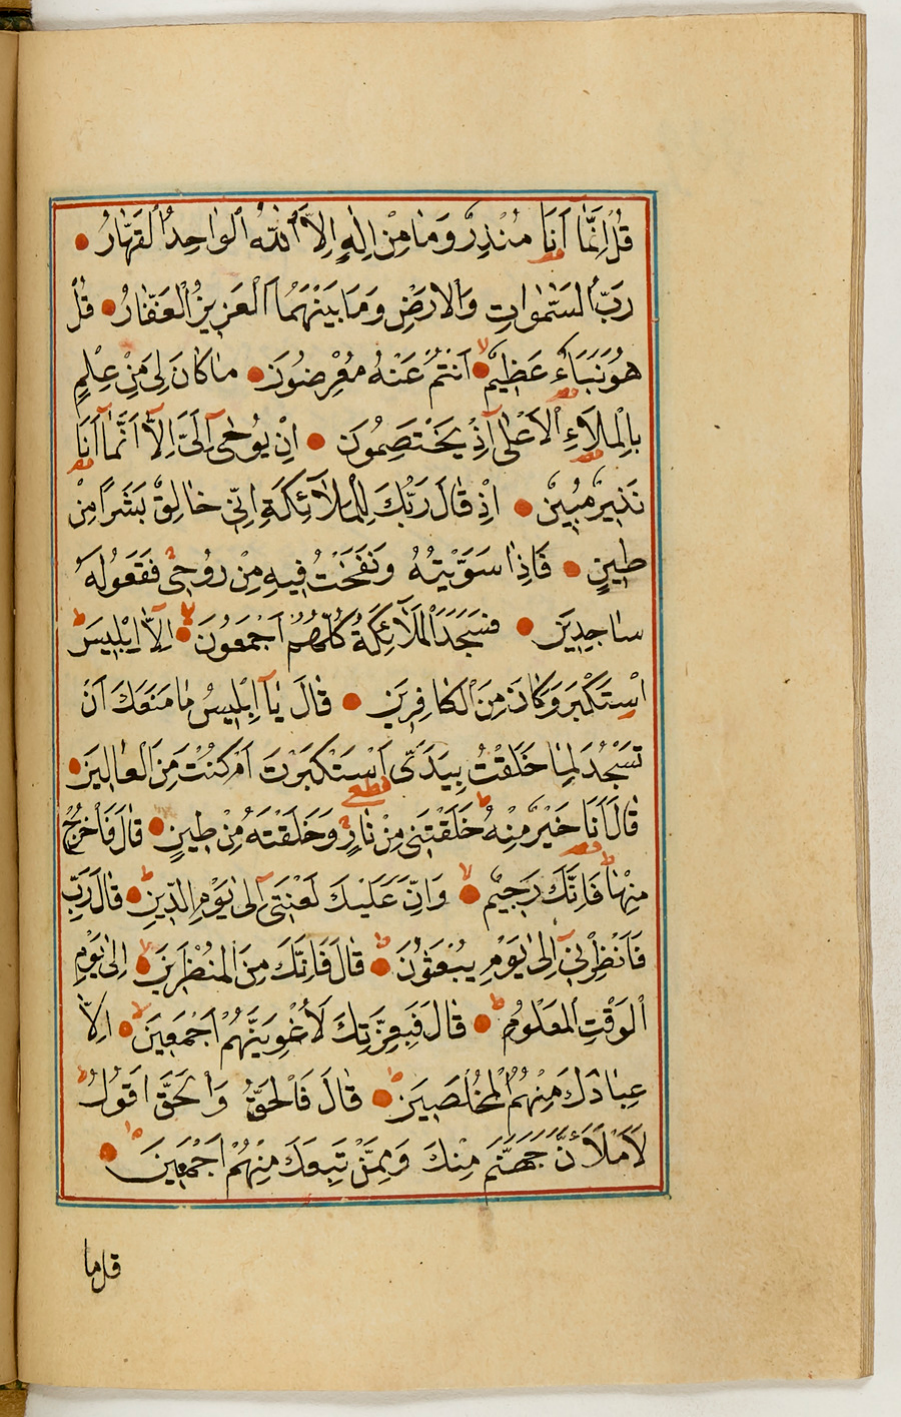 قُلْ اِنَّمَٓا اَنَا۬ مُنْذِرٌ وَمَا مِنْ اِلٰهٍ اِلَّا اللّٰهُ الْوَاحِدُ الْقَهَّارُ
رَبُّ السَّمٰوَاتِ وَالْاَرْضِ وَمَا بَيْنَهُمَا الْعَزِيزُ الْغَفَّارُ قُلْ
هُوَ نَبَأٌ عَظِيمٌ اَنْتُمْ عَنْهُ مُعْرِضُونَ مَا كَانَ لِيَ مِنْ عِلْمٍ
بِالْمَلَاِ الْاَعْلٰٓى اِذْ يَخْتَصِمُونَ اِنْ يُوحٰٓى اِلَيَّ اِلَّٓا اَنَّمَٓا اَنَا۬
نَذِيرٌ مُبِينٌ اِذْ قَالَ رَبُّكَ لِلْمَلٰٓئِكَةِ اِنِّي خَالِقٌ بَشَرًا مِنْ
طِينٍ فَاِذَا سَوَّيْتُهُ وَنَفَخْتُ فِيهِ مِنْ رُوحِي فَقَعُوا لَهُ
سَاجِدِينَ فَسَجَدَ الْمَلٰٓئِكَةُ كُلُّهُمْ اَجْمَعُونَ اِلَّٓا اِبْلِيسَ
اسْتَكْبَرَ وَكَانَ مِنَ الْكَافِرِينَ قَالَ يَٓا اِبْلِيسُ مَا مَنَعَكَ اَنْ
تَسْجُدَ لِمَا خَلَقْتُ بِيَدَيَّ اَسْتَكْبَرْتَ اَمْ كُنْتَ مِنَ الْعَالِينَ
قَالَ اَنَا۬ خَيْرٌ مِنْهُ خَلَقْتَنِي مِنْ نَارٍ وَخَلَقْتَهُ مِنْ طِينٍ قَالَ فَاخْرُجْ
مِنْهَا فَاِنَّكَ رَجِيمٌ وَاِنَّ عَلَيْكَ لَعْنَتِٓي اِلٰى يَوْمِ الدِّينِ قَالَ رَبِّ
فَاَنْظِرْنِٓي اِلٰى يَوْمِ يُبْعَثُونَ قَالَ فَاِنَّكَ مِنَ الْمُنْظَرِينَ اِلٰى يَوْمِ
الْوَقْتِ الْمَعْلُومِ قَالَ فَبِعِزَّتِكَ لَاُغْوِيَنَّهُمْ اَجْمَعِينَ اِلَّا
عِبَادَكَ مِنْهُمُ الْمُخْلَصِينَ قَالَ فَالْحَقُّ وَالْحَقَّ اَقُولُ
لَاَمْلَاَنَّ جَهَنَّمَ مِنْكَ وَمِمَّنْ تَبِعَكَ مِنْهُمْ اَجْمَعِينَ
قل ما